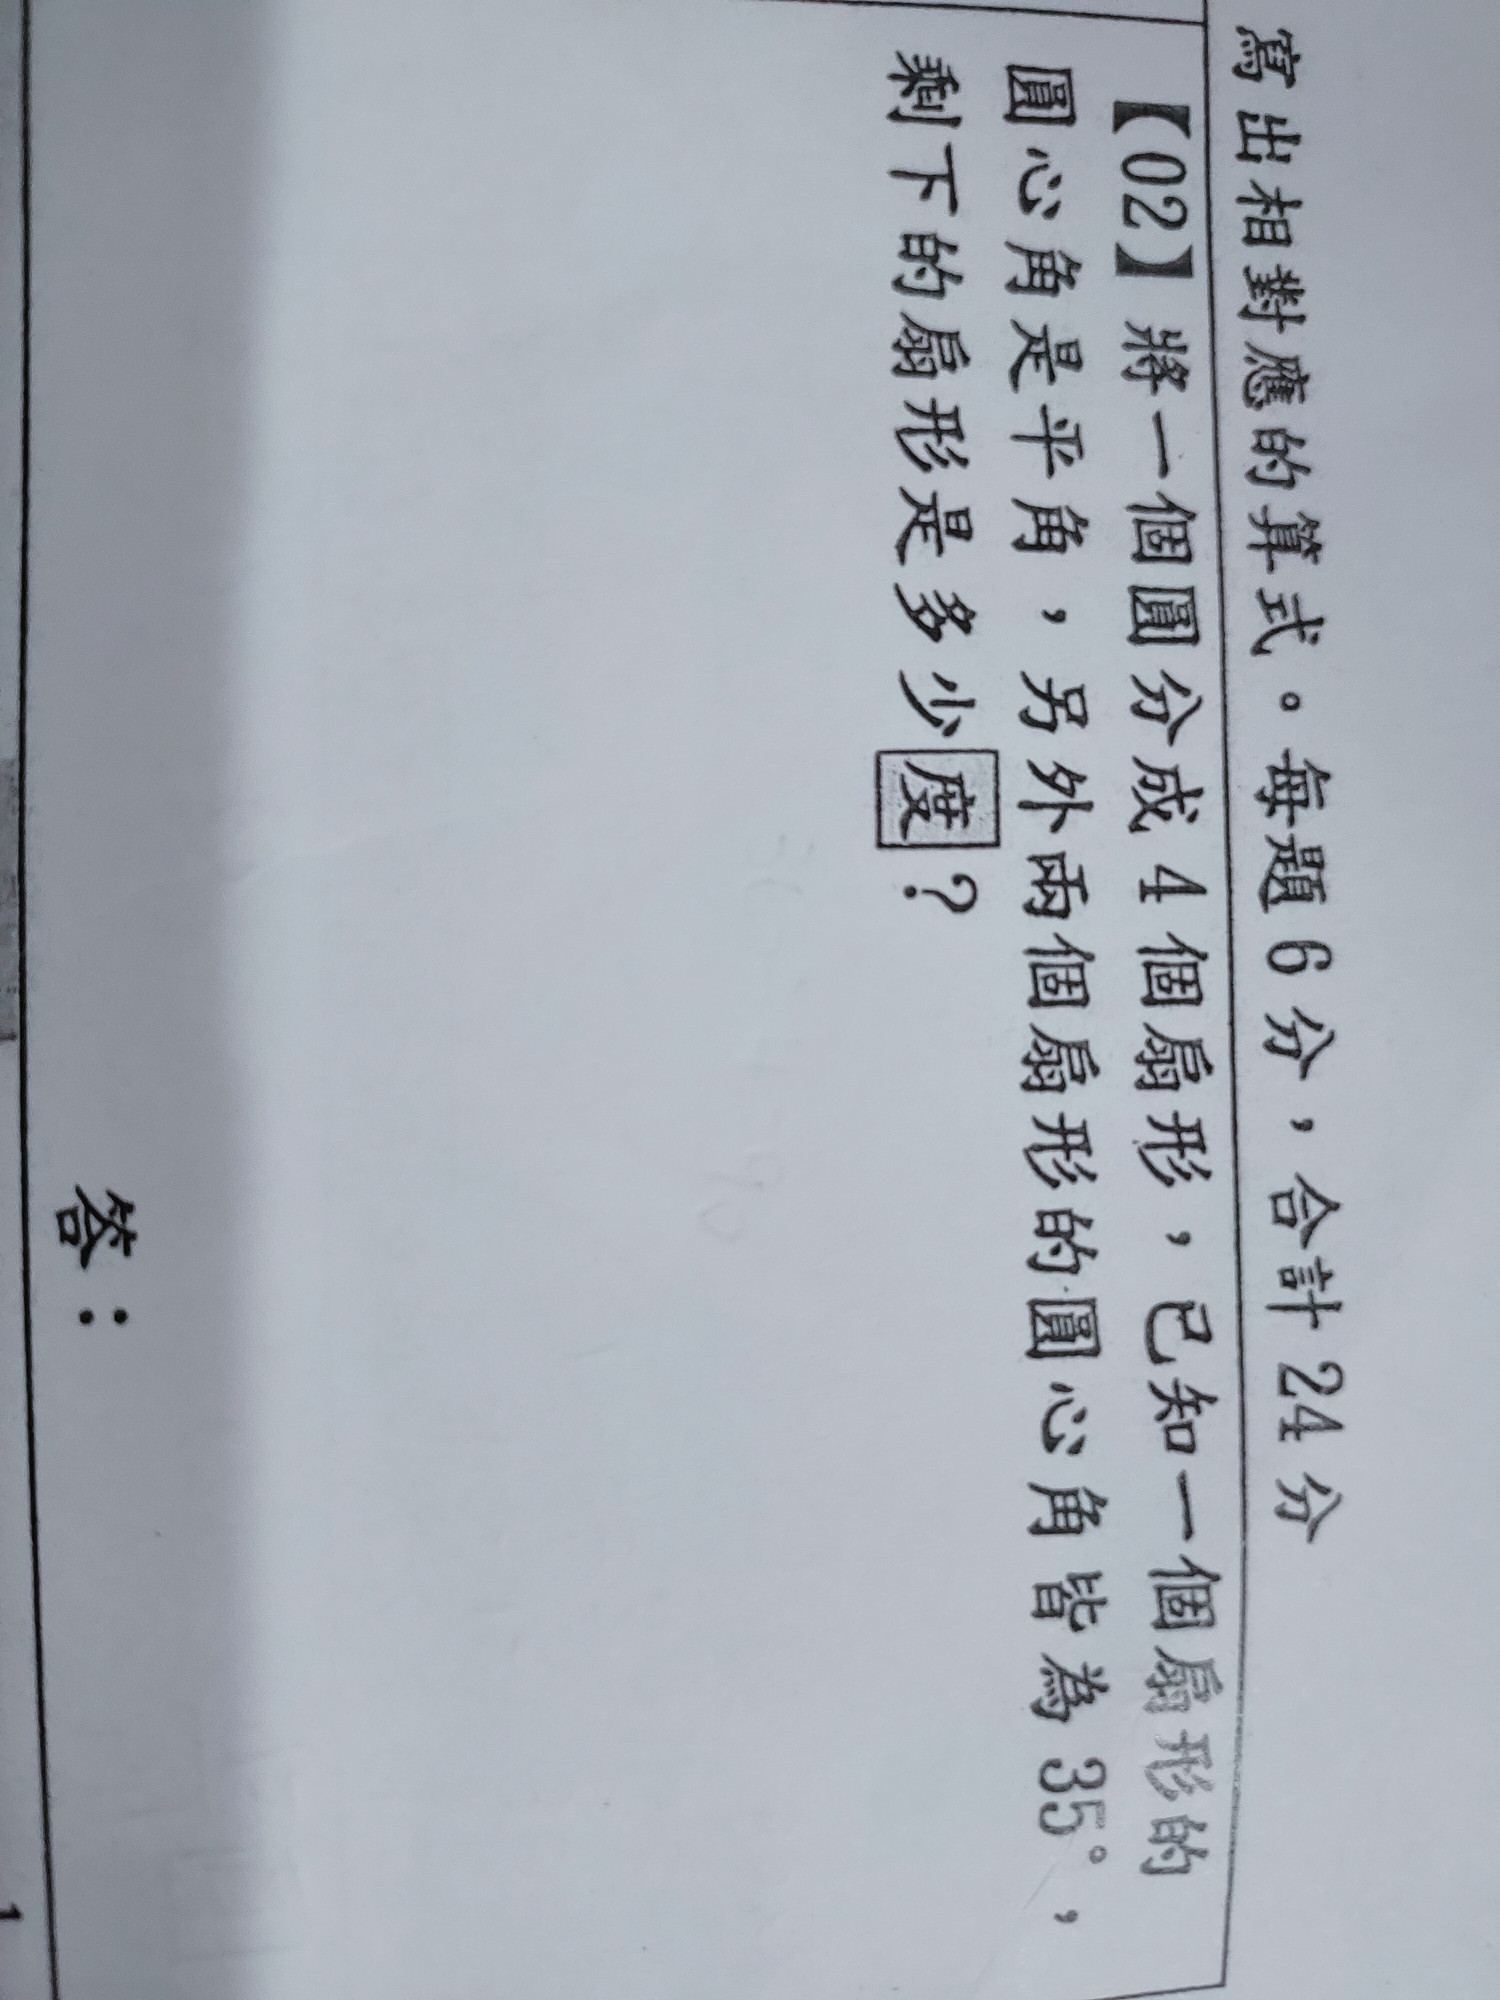 寫出相對應的算式。每題6分，合計24分
【02】將一個圓分成4個扇形，已知一個扇形的
圓心角是平角，另外兩個扇形的圓心角皆為35°，
剩下的扇形是多少度？
答：
1